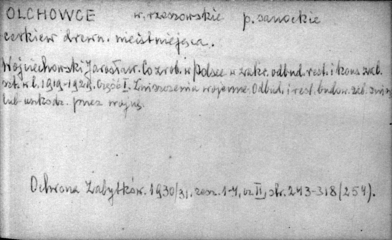 OLCHOWCE w. rzeszowskie p. sanockie
cerkiew drewn. nieistniejąca.
Wojciechowski Jarosław. Co zrob. w Polsce w zakr. odbud. rest. i kons. zab.
szt. w l. 1919-1929. Część I. Zniszczenia wojenne. Odbud. i rest. budow. zab. zniszcz.
lub uszkodz. przez wojnę.
Ochrona Zabytków. 1930/31. zesz. 1-4, cz II, str. 243-318 (254).